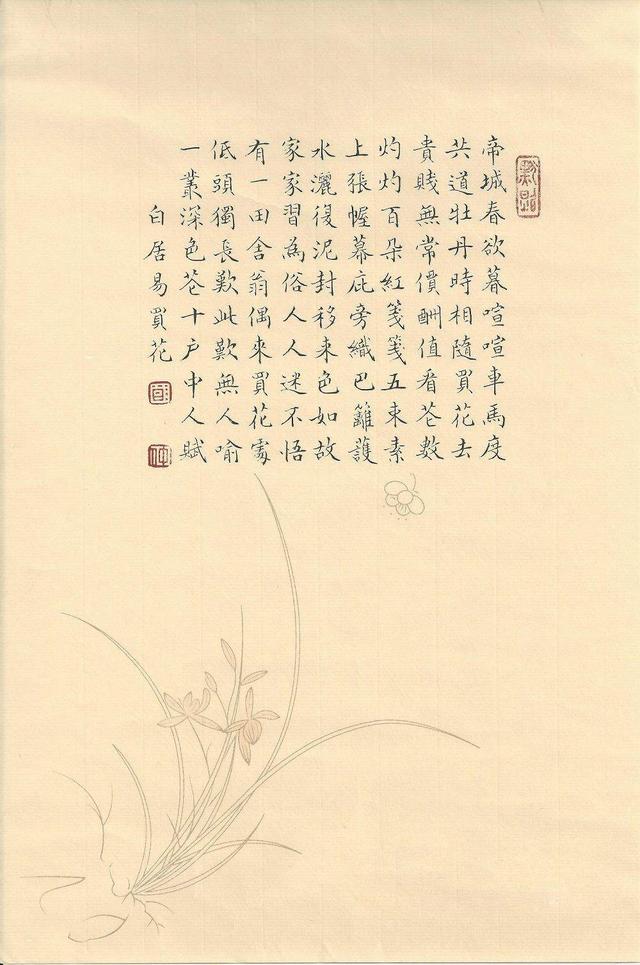 帝城春欲暮喧喧車馬度
共道牡丹時相隨買花去
貴賤無常價酬值看花數
灼灼百朵紅箋箋五束素
上張幄幕庇旁織巴籬護
水灑復泥封移來色如故
家家習為俗人人迷不悟
有一田舍翁偶來買花處
低頭獨長歎此歎無人喻
一叢深色花十戶中人賦
白居易買花